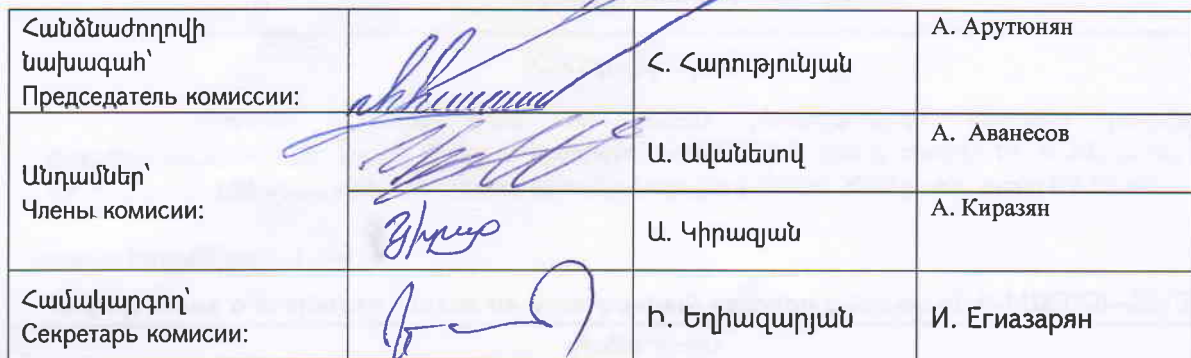 Հանձնաժողովի
նախագահ՝
Председатель комиссии:
Հ. Հարությունյան
А. Арутюнян
Անդամներ՝
Члены комисии:
Ա. Ավանեսով
А. Аванесов
Ա. Կիրազյան
А. Киразян
Համակարգող՝
Секретарь комисии:
Ի. Եղիազարյան
И. Егиазарян